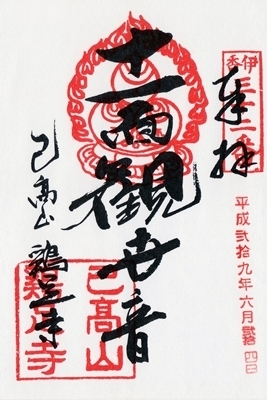 伊香
奉拝
平成弐拾九年六月弐拾四日
十一面観世音
己高山
鶏足寺
己高山
鶏足寺